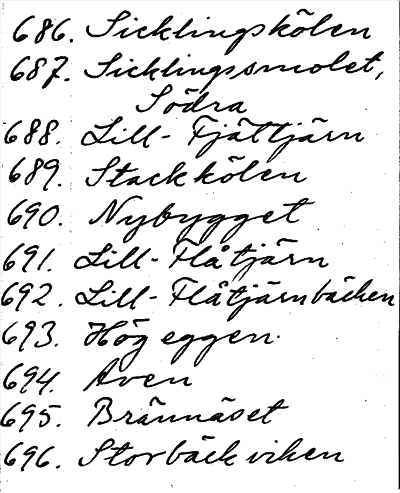 686. Sicklingskölen
687. Sicklingssmolet,
Södra
688. Lill-Fjättjärn
689. Stackkölen
690. Nybygget
691. Lill-Flåtjärn
692. Lill-Flåtjärnbäcken
693. Hög eggen.
694. Aven
695. Brännäset
696. Storbäckviken